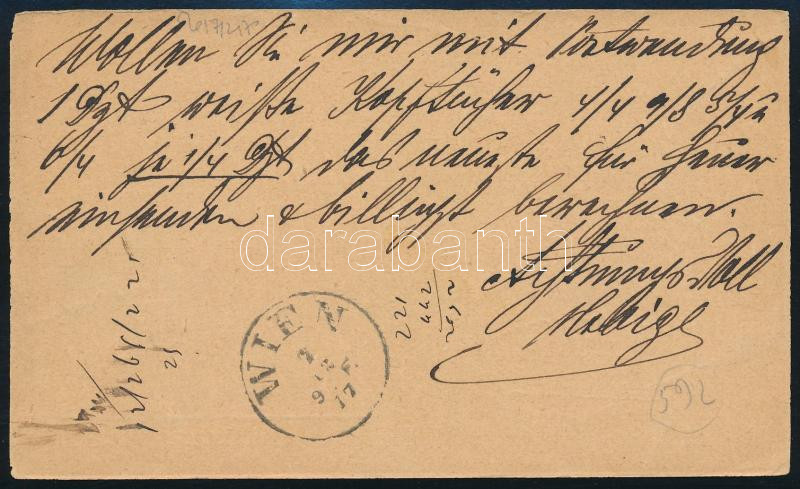 Wollen Sie mir mit Postwendung
1 Dzt weiße Kopftücher 4/4 9/8 5/4 u
6/4 je 1/4 Dzt das neueste für heuer
einsenden & billigst berechnen.
Achtungsvoll
darabanth
WIEN
221
442
592